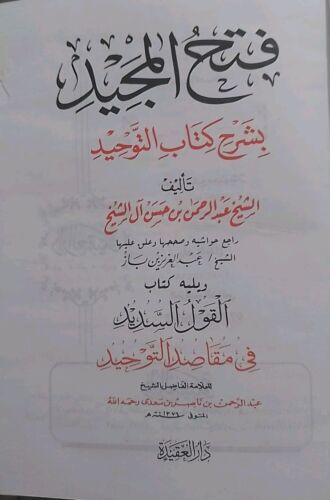 فتح المجيد
بشرح كتاب التوحيد
تأليف
الشيخ عبد الرحمن بن حسن آل الشيخ
راجع حواشيه وصححها وعلق عليها
الشيخ / عبد العزيز بن باز
ويليه كتاب
القول السديد
في مقاصد التوحيد
للعلامة الفاضل الشيخ
عبد الرحمن بن ناصر بن سعدي رحمه الله
المتوفى ١٣٧٦ هـ
دار العقيدة